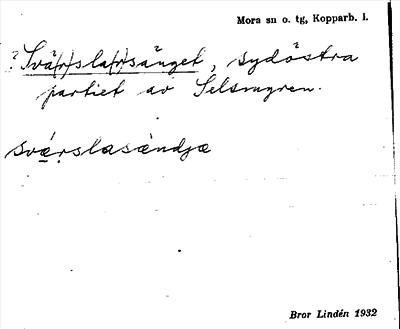 Mora sn o. tg, Kopparb. l.
? Svä(r)sla(r)sänget, sydöstra
partiet av Selsmyren.
svärslasändjæ
Bror Lindén 1932